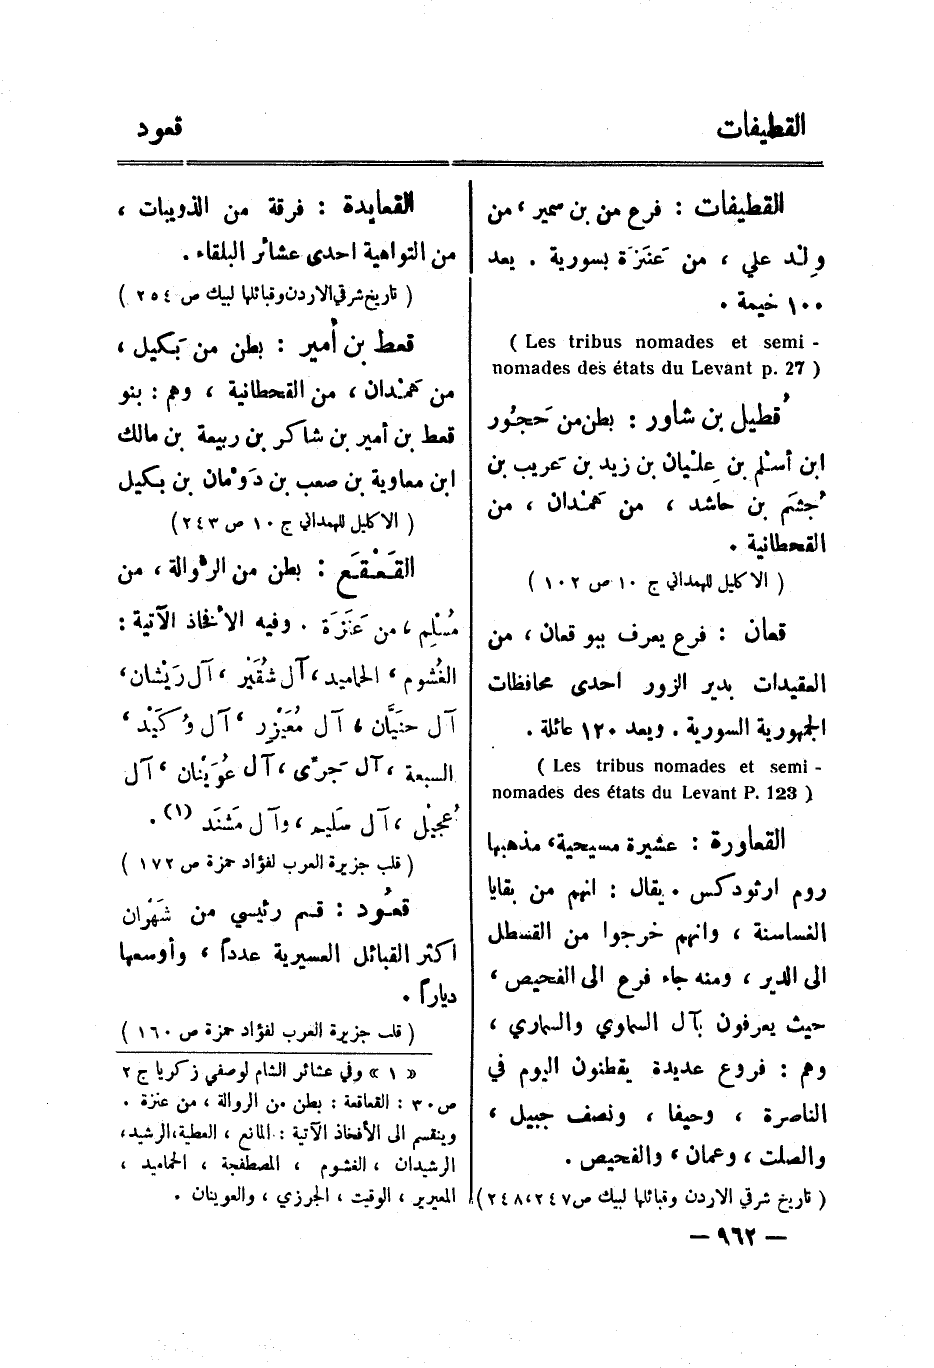 القطيفات
قعود
القطيفات : فرع من بن سمير ، من
ولد علي ، من عَنَزَة بسورية . يعد
١٠٠ خيمة .
( Les tribus nomades et semi -
nomades des états du Levant p. 27 )
قُطيل بن شاور : بطن من حَجُور
ابن أسْلم بن عِلْيان بن زيد بن عَريب بن
جُشَم بن حاشد ، من هَمْدان ، من
القحطانية .
( الاكليل للهمداني ج ١٠ ص ١٠٢ )
قعان : فرع يعرف ببو قعان ، من
العقيدات بدير الزور احدى محافظات
الجمهورية السورية . ويعد ١٢٠ عائلة .
( Les tribus nomades et semi -
nomades des états du Levant P. 123 )
القعاورة : عشيرة مسيحية ، مذهبها
روم ارثودكس . يقال : انهم من بقايا
الغساسنة ، وانهم خرجوا من القسطل
الى الدير ، ومنه جاء فرع الى الفحيص ،
حيث يعرفون بآل السماوي والسماري ،
وهم : فروع عديدة يقطنون اليوم في
الناصرة ، وحيفا ، ونصف جبيل ،
والصلت ، وعمان ، والفحيص .
( تاريخ شرقي الاردن وقبائلها لبيك ص٢٤٨،٢٤٧)
القعايدة : فرقة من الذويبات ،
من التواهية احدى عشائر البلقاء .
( تاريخ شرقي الاردن وقبائلها لبيك ص ٢٥٤ )
قعط بن أُمير : بطن من بَكيل ،
من هَمْدان ، من القحطانية ، وهم : بنو
قعط بن أمير بن شاكر بن ربيعة بن مالك
ابن معاوية بن صعب بن دَوْمان بن بكيل
( الاكليل للهمداني ج ١٠ ص ٢٤٣)
القَعْقَع : بطن من الرُوالة ، من
مُسْلِم ، من عَنَزَة . وفيه الأفخاذ الآتية :
الغُشوم ، الحماميد ، آل شُقَيْر ، آل رَيْشان ،
آل حنَيَّان ، آل مُعَيْزِر ، آل وُكَيْد ،
السبعة ، آل جَرّى ، آل عُوَيْنان ، آل
عُجَيْل ، آل سَليم ، وآل مَشْنَد (١) .
( قلب جزيرة العرب لفؤاد حمزة ص ١٧٢ )
قعُود : قسم رئيسي من شَهْران
اكثر القبائل العسيرية عدداً ، وأوسعها
دياراً .
( قلب جزيرة العرب لفؤاد حمزة ص ١٦٠ )
« ١ » وفي عشائر الشام لوصفي زكريا ج ٢
ص٣٠ : القعاقعة : بطن من الروالة ، من عنزة .
وينقسم الى الأفخاذ الآتية : المانع ، العطية، الرشيد،
الرشيدان ، الغشوم ، المصطفجة ، الحماميد ،
المعيرير ، الوقيت ، الجرزي ، والعوينان .
— ٩٦٢ —